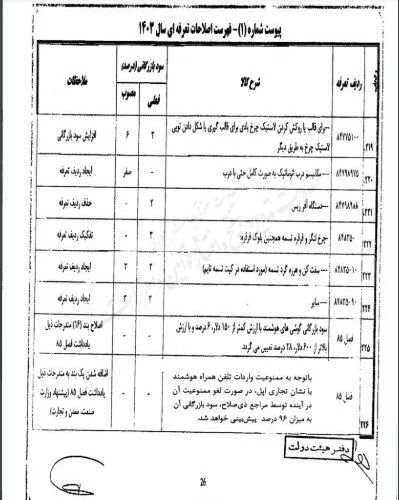 پیوست شماره (۱)- فهرست اصلاحات تعرفه ای سال ۱۴۰۳
ردیف تعرفه شرح کالا سود بازرگانی (درصد) ملاحظات
فعلی مصوب
۲۱۹. ۸۴۷۷۵۱۰۰ ---برای قالب یا روکش کردن لاستیک چرخ بادی برای قالب گیری یا شکل دادن تویی ۲ ۶ افزایش سود بازرگانی
لاستیک چرخ به طریق دیگر
۲۲۰. ۸۴۷۹۸۹۷۵ ---- مکانیسم درب اتوماتیک به صورت کامل حتی با درب - صفر ایجاد ردیف تعرفه
۲۲۱. ۸۴۷۹۸۹۸۸ ---- دستگاه آفر ریس ۲ - حذف ردیف تعرفه
۲۲۲ ۸۴۸۳۵۰ -چرخ لنگر و قرقره تسمه همچنین بلوک قرقره: ۲ - تفکیک ردیف تعرفه
۲۲۳ ۸۴۸۳۵۰۱۰ --- سفت کن و هرزه گرد تسمه (مورد استفاده در کیت تسمه تایم) ۲ ۲ ایجاد ردیف تعرفه
۲۲۴ ۸۴۸۳۵۰۹۰ --- سایر ۲ ۲ ایجاد ردیف تعرفه
۲۲۵ فصل ۸۵ سود بازرگانی گوشی های هوشمند با ارزش کمتر از ۱۵۰ دلار، ۶ درصد و با ارزش - - اصلاح بند (۱۶) مندرجات ذیل
بالاتر از ۶۰۰ دلار، ۲۸ درصد تعیین می گردد. یادداشت فصل ۸۵
۲۲۶ فصل ۸۵ باتوجه به ممنوعیت واردات تلفن همراه هوشمند - - اضافه شدن یک بند به مندرجات ذیل
با نشان تجاری اپل، در صورت لغو ممنوعیت آن یادداشت فصل ۸۵ (پیشنهاد وزارت
در آینده توسط مراجع ذی‌صلاح، سود بازرگانی آن صنعت، معدن و تجارت)
به میزان ۹۶ درصد پیش‌بینی خواهد شد.
دفتر هیئت دولت
26